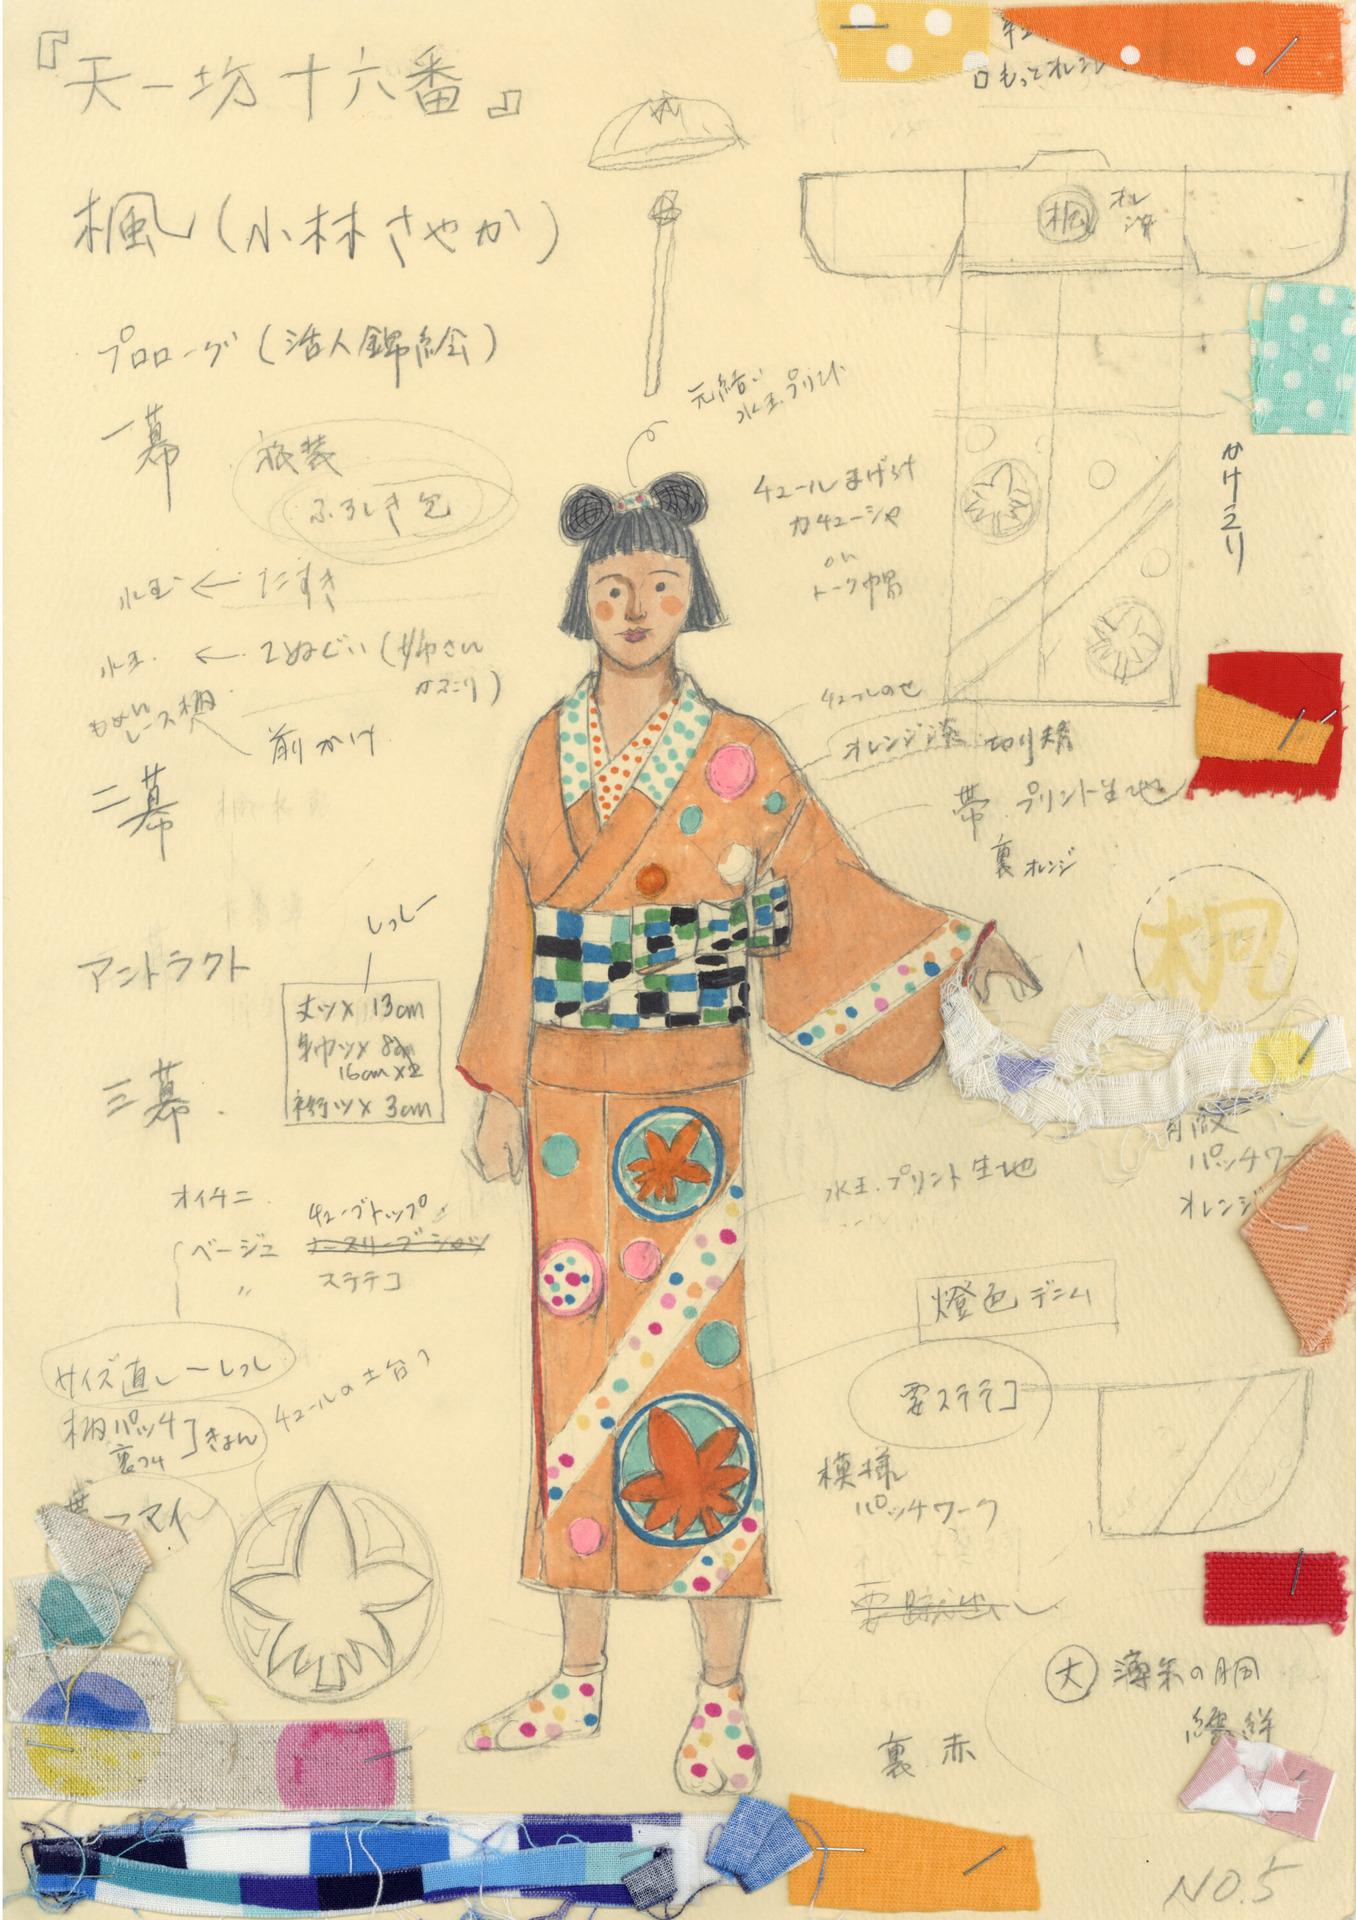 『天一坊十六番』
楓(小林さやか)
プロローグ(活人錦絵)
一幕
旅装
ふろしき包
水玉 ← たすき
水玉 ← てぬぐい(姉さん
かぶり)
もめん
レース
前かけ
二幕
アントラクト
しっしー
丈ツメ 13cm
身巾ツメ 8cm
16cm×2
裄ツメ 3cm
三幕
オイチニ
ベージュ チューブトップ
〃 ステテコ
サイズ直し
柄パッチ
きょん
チュールの土台
帯
マイ
もっとオレンジ
楓
オレンジ
元結い
水玉プリント
チュールまげつけ
カチューシャ
or
トーク帽
かけえり
チュールのせ
オレンジ 切り替
帯 プリント生地
裏 オレンジ
楓
パッチワー
オレンジ
水玉プリント生地
燈色デニム
要ステテコ
模様
パッチワーク
大 薄朱の胴
裏 赤
NO.5